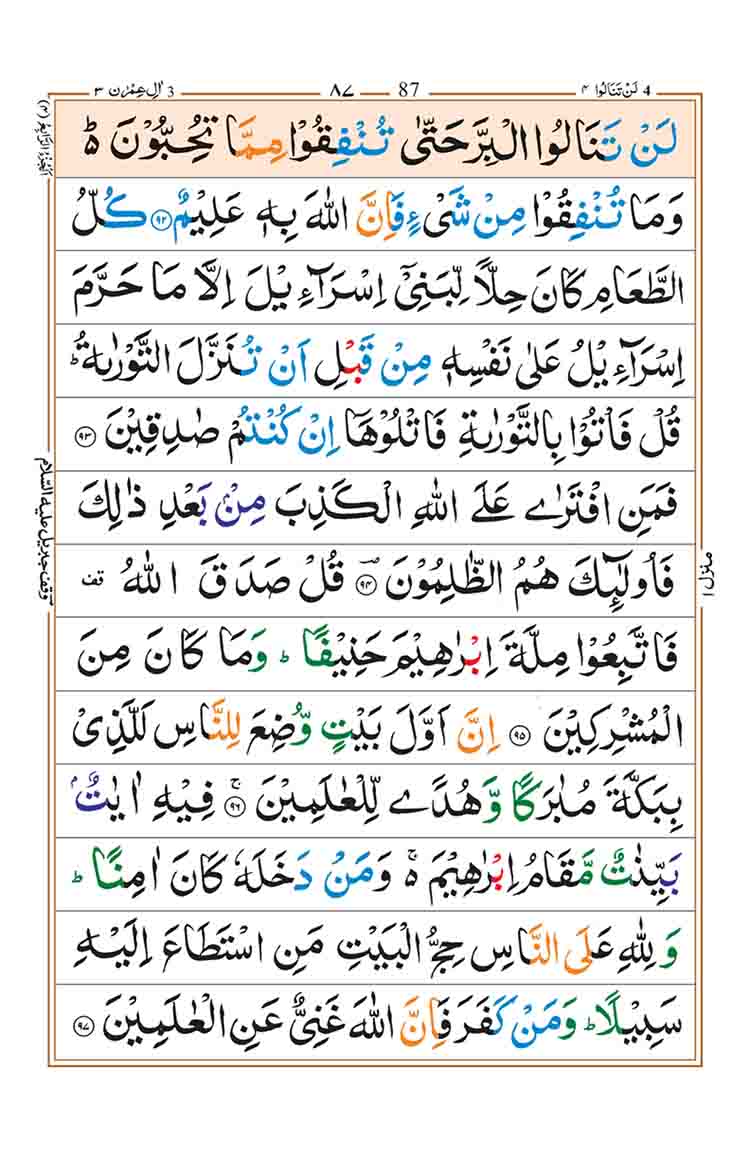 4 لَنْ تَنَالُوا ۴ 87 ۸۷ 3 اٰلِ عِمْرٰن ۳
الجزء الرابع (۴)
لَنْ تَنَالُوا الْبِرَّ حَتّٰى تُنْفِقُوْا مِمَّا تُحِبُّوْنَ ؕ۬
وَمَا تُنْفِقُوْا مِنْ شَیْءٍ فَاِنَّ اللّٰهَ بِهٖ عَلِیْمٌ ۝۹۲ كُلُّ
الطَّعَامِ كَانَ حِلًّا لِّبَنِیْۤ اِسْرَآءِیْلَ اِلَّا مَا حَرَّمَ
اِسْرَآءِیْلُ عَلٰى نَفْسِهٖ مِنْ قَبْلِ اَنْ تُنَزَّلَ التَّوْرٰىةُ ؕ
قُلْ فَاْتُوْا بِالتَّوْرٰىةِ فَاتْلُوْهَاۤ اِنْ كُنْتُمْ صٰدِقِیْنَ ۝۹۳
فَمَنِ افْتَرٰى عَلَى اللّٰهِ الْكَذِبَ مِنْۢ بَعْدِ ذٰلِكَ
فَاُولٰٓىِٕكَ هُمُ الظّٰلِمُوْنَ ۝۹۴ؔ قُلْ صَدَقَ اللّٰهُ ۫ قف
فَاتَّبِعُوْا مِلَّةَ اِبْرٰهِیْمَ حَنِیْفًا ؕ وَمَا كَانَ مِنَ
الْمُشْرِكِیْنَ ۝۹۵ اِنَّ اَوَّلَ بَیْتٍ وُّضِعَ لِلنَّاسِ لَلَّذِیْ
بِبَكَّةَ مُبٰرَكًا وَّهُدًى لِّلْعٰلَمِیْنَ ۝۹۶ۚ فِیْهِ اٰیٰتٌۢ
بَیِّنٰتٌ مَّقَامُ اِبْرٰهِیْمَ ۚ۬ وَمَنْ دَخَلَهٗ كَانَ اٰمِنًا ؕ
وَلِلّٰهِ عَلَى النَّاسِ حِجُّ الْبَیْتِ مَنِ اسْتَطَاعَ اِلَیْهِ
سَبِیْلًا ؕ وَمَنْ كَفَرَ فَاِنَّ اللّٰهَ غَنِیٌّ عَنِ الْعٰلَمِیْنَ ۝۹۷
وقف جبریل علیه السلام
منزل ۱